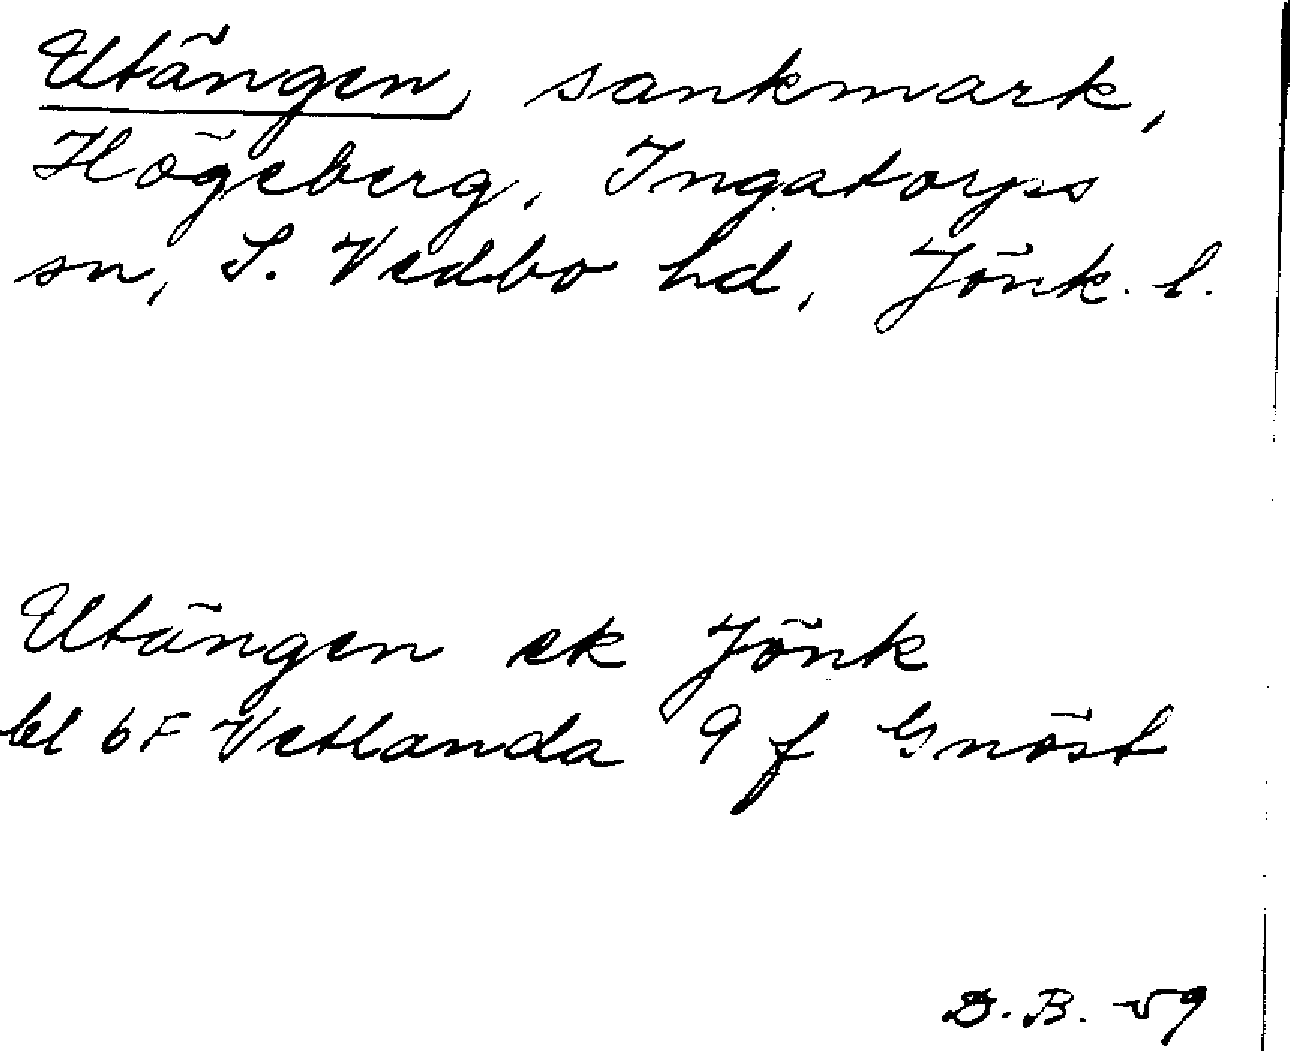 Utängen, sankmark,
Högeberg, Ingatorps
sn, S. Vedbo hd, Jönk. l.
Utängen ek Jönk
bl 6F Vetlanda 9 f Gnöst
D. B. -59